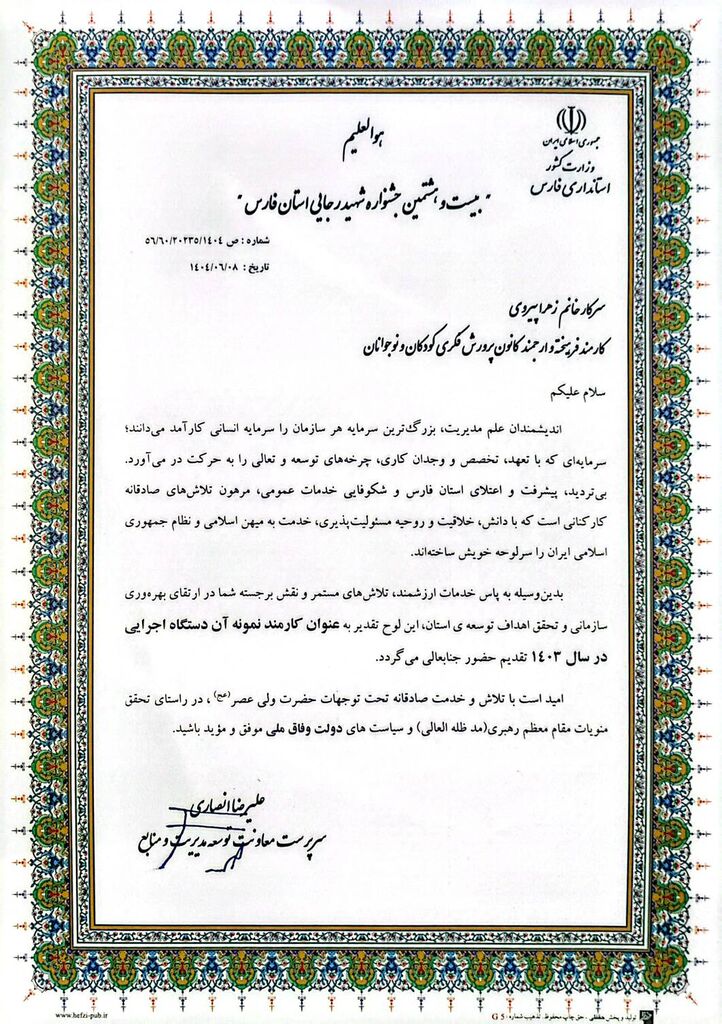 جمهوری اسلامی ایران
وزارت کشور
استانداری فارس
هوالعلیم
"بیست و هشتمین جشنواره شهید رجایی استان فارس"
شماره : ص ۵۶/۶۰/۲۰۲۳۵/۱۴۰۴
تاریخ : ۱۴۰۴/۰۶/۰۸
سرکار خانم زهرا پیروی
کارمند فرهیخته و ارجمند کانون پرورش فکری کودکان و نوجوانان
سلام علیکم
اندیشمندان علم مدیریت، بزرگ‌ترین سرمایه هر سازمان را سرمایه انسانی کارآمد می‌دانند؛
سرمایه‌ای که با تعهد، تخصص و وجدان کاری، چرخه‌های توسعه و تعالی را به حرکت در می‌آورد.
بی‌تردید، پیشرفت و اعتلای استان فارس و شکوفایی خدمات عمومی، مرهون تلاش‌های صادقانه
کارکنانی است که با دانش، خلاقیت و روحیه مسئولیت‌پذیری، خدمت به میهن اسلامی و نظام جمهوری
اسلامی ایران را سرلوحه خویش ساخته‌اند.
بدین‌وسیله به پاس خدمات ارزشمند، تلاش‌های مستمر و نقش برجسته شما در ارتقای بهره‌وری
سازمانی و تحقق اهداف توسعه ی استان، این لوح تقدیر به عنوان کارمند نمونه آن دستگاه اجرایی
در سال ۱۴۰۳ تقدیم حضور جنابعالی می گردد.
امید است با تلاش و خدمت صادقانه تحت توجهات حضرت ولی عصر(عج) ، در راستای تحقق
منویات مقام معظم رهبری(مد ظله العالی) و سیاست های دولت وفاق ملی موفق و مؤید باشید.
علیرضا انصاری
سرپرست معاونت توسعه مدیریت و منابع
تولید و پخش حفظی . حق چاپ محفوظ . تذهیب شماره G 5
www.hefzi-pub.ir